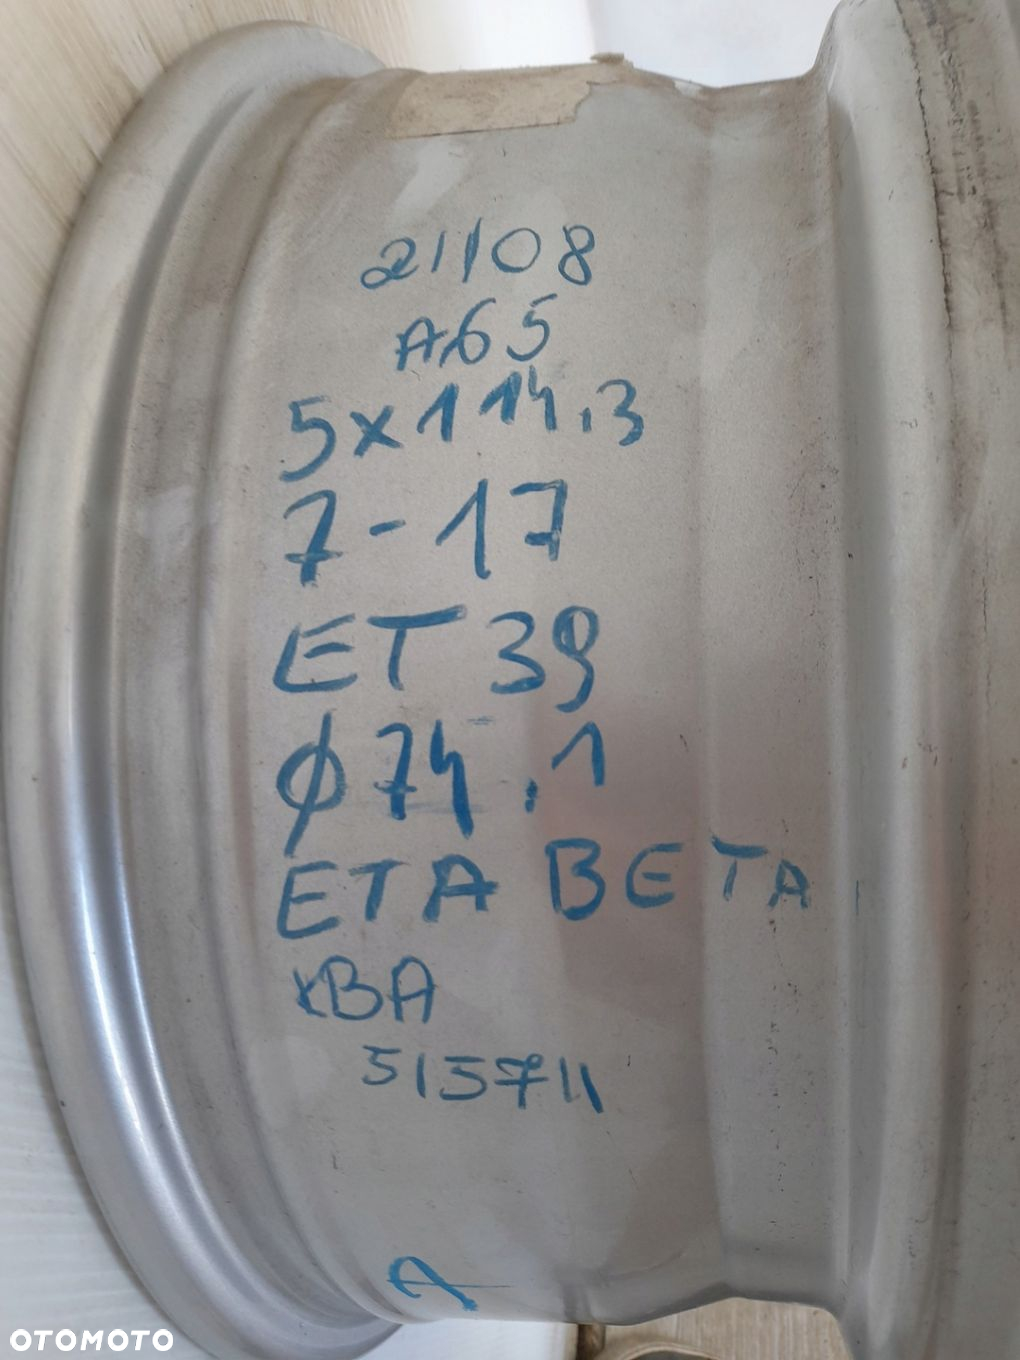 21108
A65
5x114,3
7-17
ET 39
ø 74,1
ETA BETA
KBA
515711
7
OTOMOTO